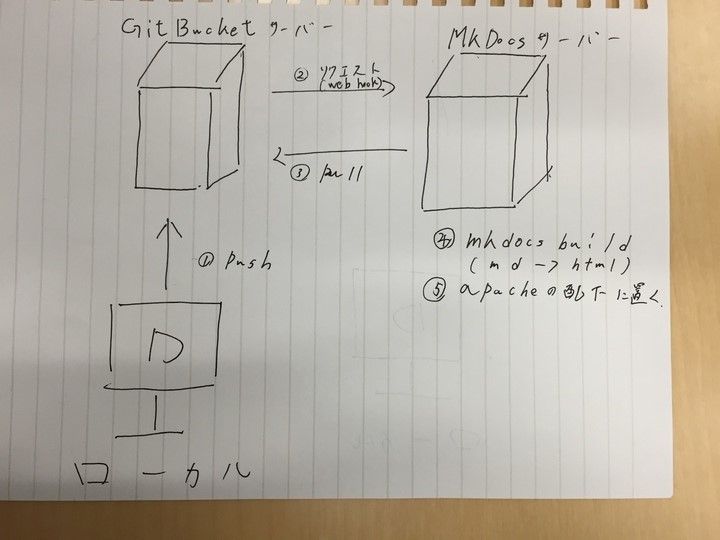 GitBucketサーバー
MkDocsサーバー
② リクエスト
(web hook)
③ pull
① push
D
ローカル
④ mkdocs build
(md -> html)
⑤ apacheの配下に置く